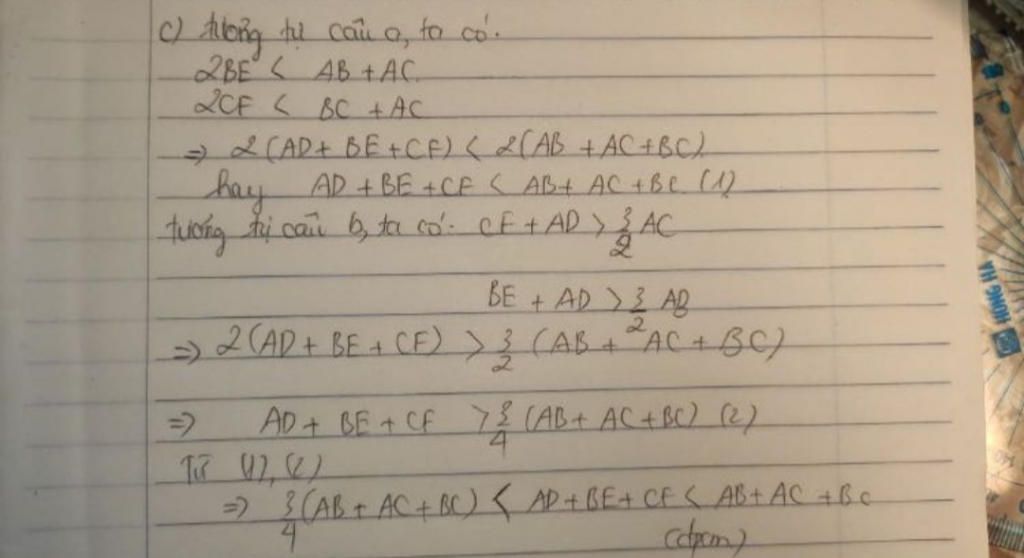 c) tương tự câu a, ta có:
2BE < AB + AC
2CF < BC + AC
=> 2(AD + BE + CF) < 2(AB + AC + BC)
hay AD + BE + CF < AB + AC + BC (1)
tương tự câu b, ta có: CF + AD > 3/2 AC
BE + AD > 3/2 AB
=> 2(AD + BE + CF) > 3/2 (AB + AC + BC)
=> AD + BE + CF > 3/4 (AB + AC + BC) (2)
Từ (1), (2)
=> 3/4 (AB + AC + BC) < AD + BE + CF < AB + AC + BC
(đpcm)
HONG HA